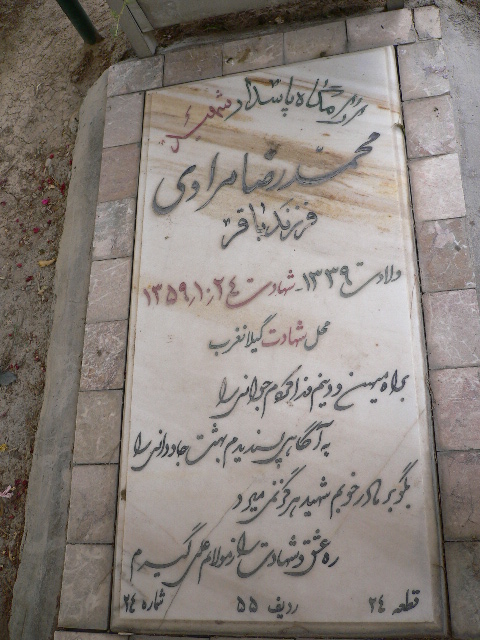 آرامگاه پاسدار شهید
محمدرضا مرادی
فرزند باقر
ولادت ۱۳۳۹ - شهادت ۱۳۵۹٫۱۰٫۲۴
محل شهادت گیلانغرب
براه میهن و دینم فدا کردم جوانی را
به آگاهی پسندیدم بهشت جاودانی را
بگو بر مادر خوبم شهید هرگز نمی میرد
ره عشق و شهادت را ز مولایم علی گیرم
قطعه ۲۴ ردیف ۵۵ شماره ۲۴